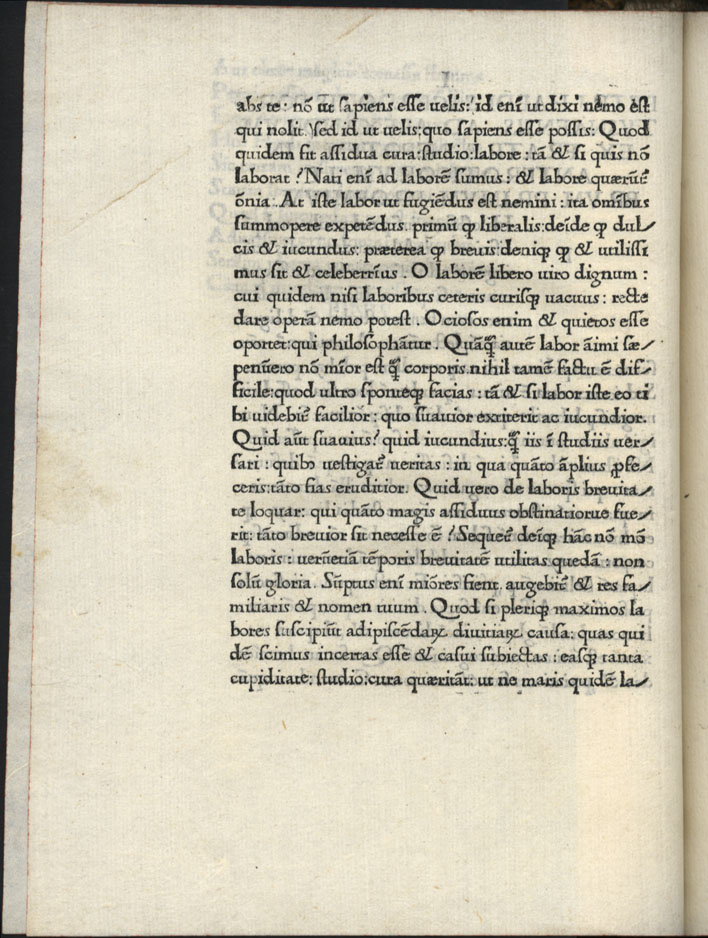 abs te: nō ut sapiens esse uelis: id enī ut dixi nemo est
qui nolit. sed id ut uelis: quo sapiens esse possis: Quod
quidem fit assidua cura: studio: labore: tā & si quis nō
laborat? Nati enī ad laborē sumus: & labore quærūt̄
ōnia. At iste labor ut fugiēdus est nemini: ita omībus
summopere expetēdus. primū ꝙ liberalis: deīde ꝙ dul/
cis & iucundus: præterea ꝙ breuis: deniqꝫ ꝙ & utilissi
mus sit & celeberrīus. O laborē libero uiro dignum:
cui quidem nisi laboribus ceteris curisqꝫ uacuus: recte
dare operā nemo potest. Ociosos enim & quietos esse
oportet: qui philosophātur. Quāqꝫ autē labor āimi sæ/
penūero nō mīor est qꝫ corporis. nihil tamē factu ē dif/
ficile: quod ultro sponteqꝫ facias: tā & si labor iste eo ti
bi uidebit̄ facilior: quo suauior extiterit ac iucundior.
Quid aūt suauius? quid iucundius: qꝫ iis ī studiis uer/
sari: quibꝰ uestigat̄ ueritas: in qua quāto āplius ꝓfe/
ceris: tāto fias eruditior. Quid uero de laboris breuita/
te loquar: qui quāto magis assiduus obstinatiorue fue/
rit: tāto breuior sit necesse ē? Sequet̄ deīqꝫ hāc nō mō
laboris: uerūetiā tēporis breuitatē utilitas quedā: non
solū gloria. Sūptus enī miōres fient. augebit̄ & res fa/
miliaris & nomen tuum. Quod si pleriqꝫ maximos la
bores suscipiūt adipiscēdaꝝ diuitiaꝝ causa: quas qui
dē scimus incertas esse & casui subiectas: easqꝫ tanta
cupiditate: studio: cura quæritāt: ut ne maris quidē la/